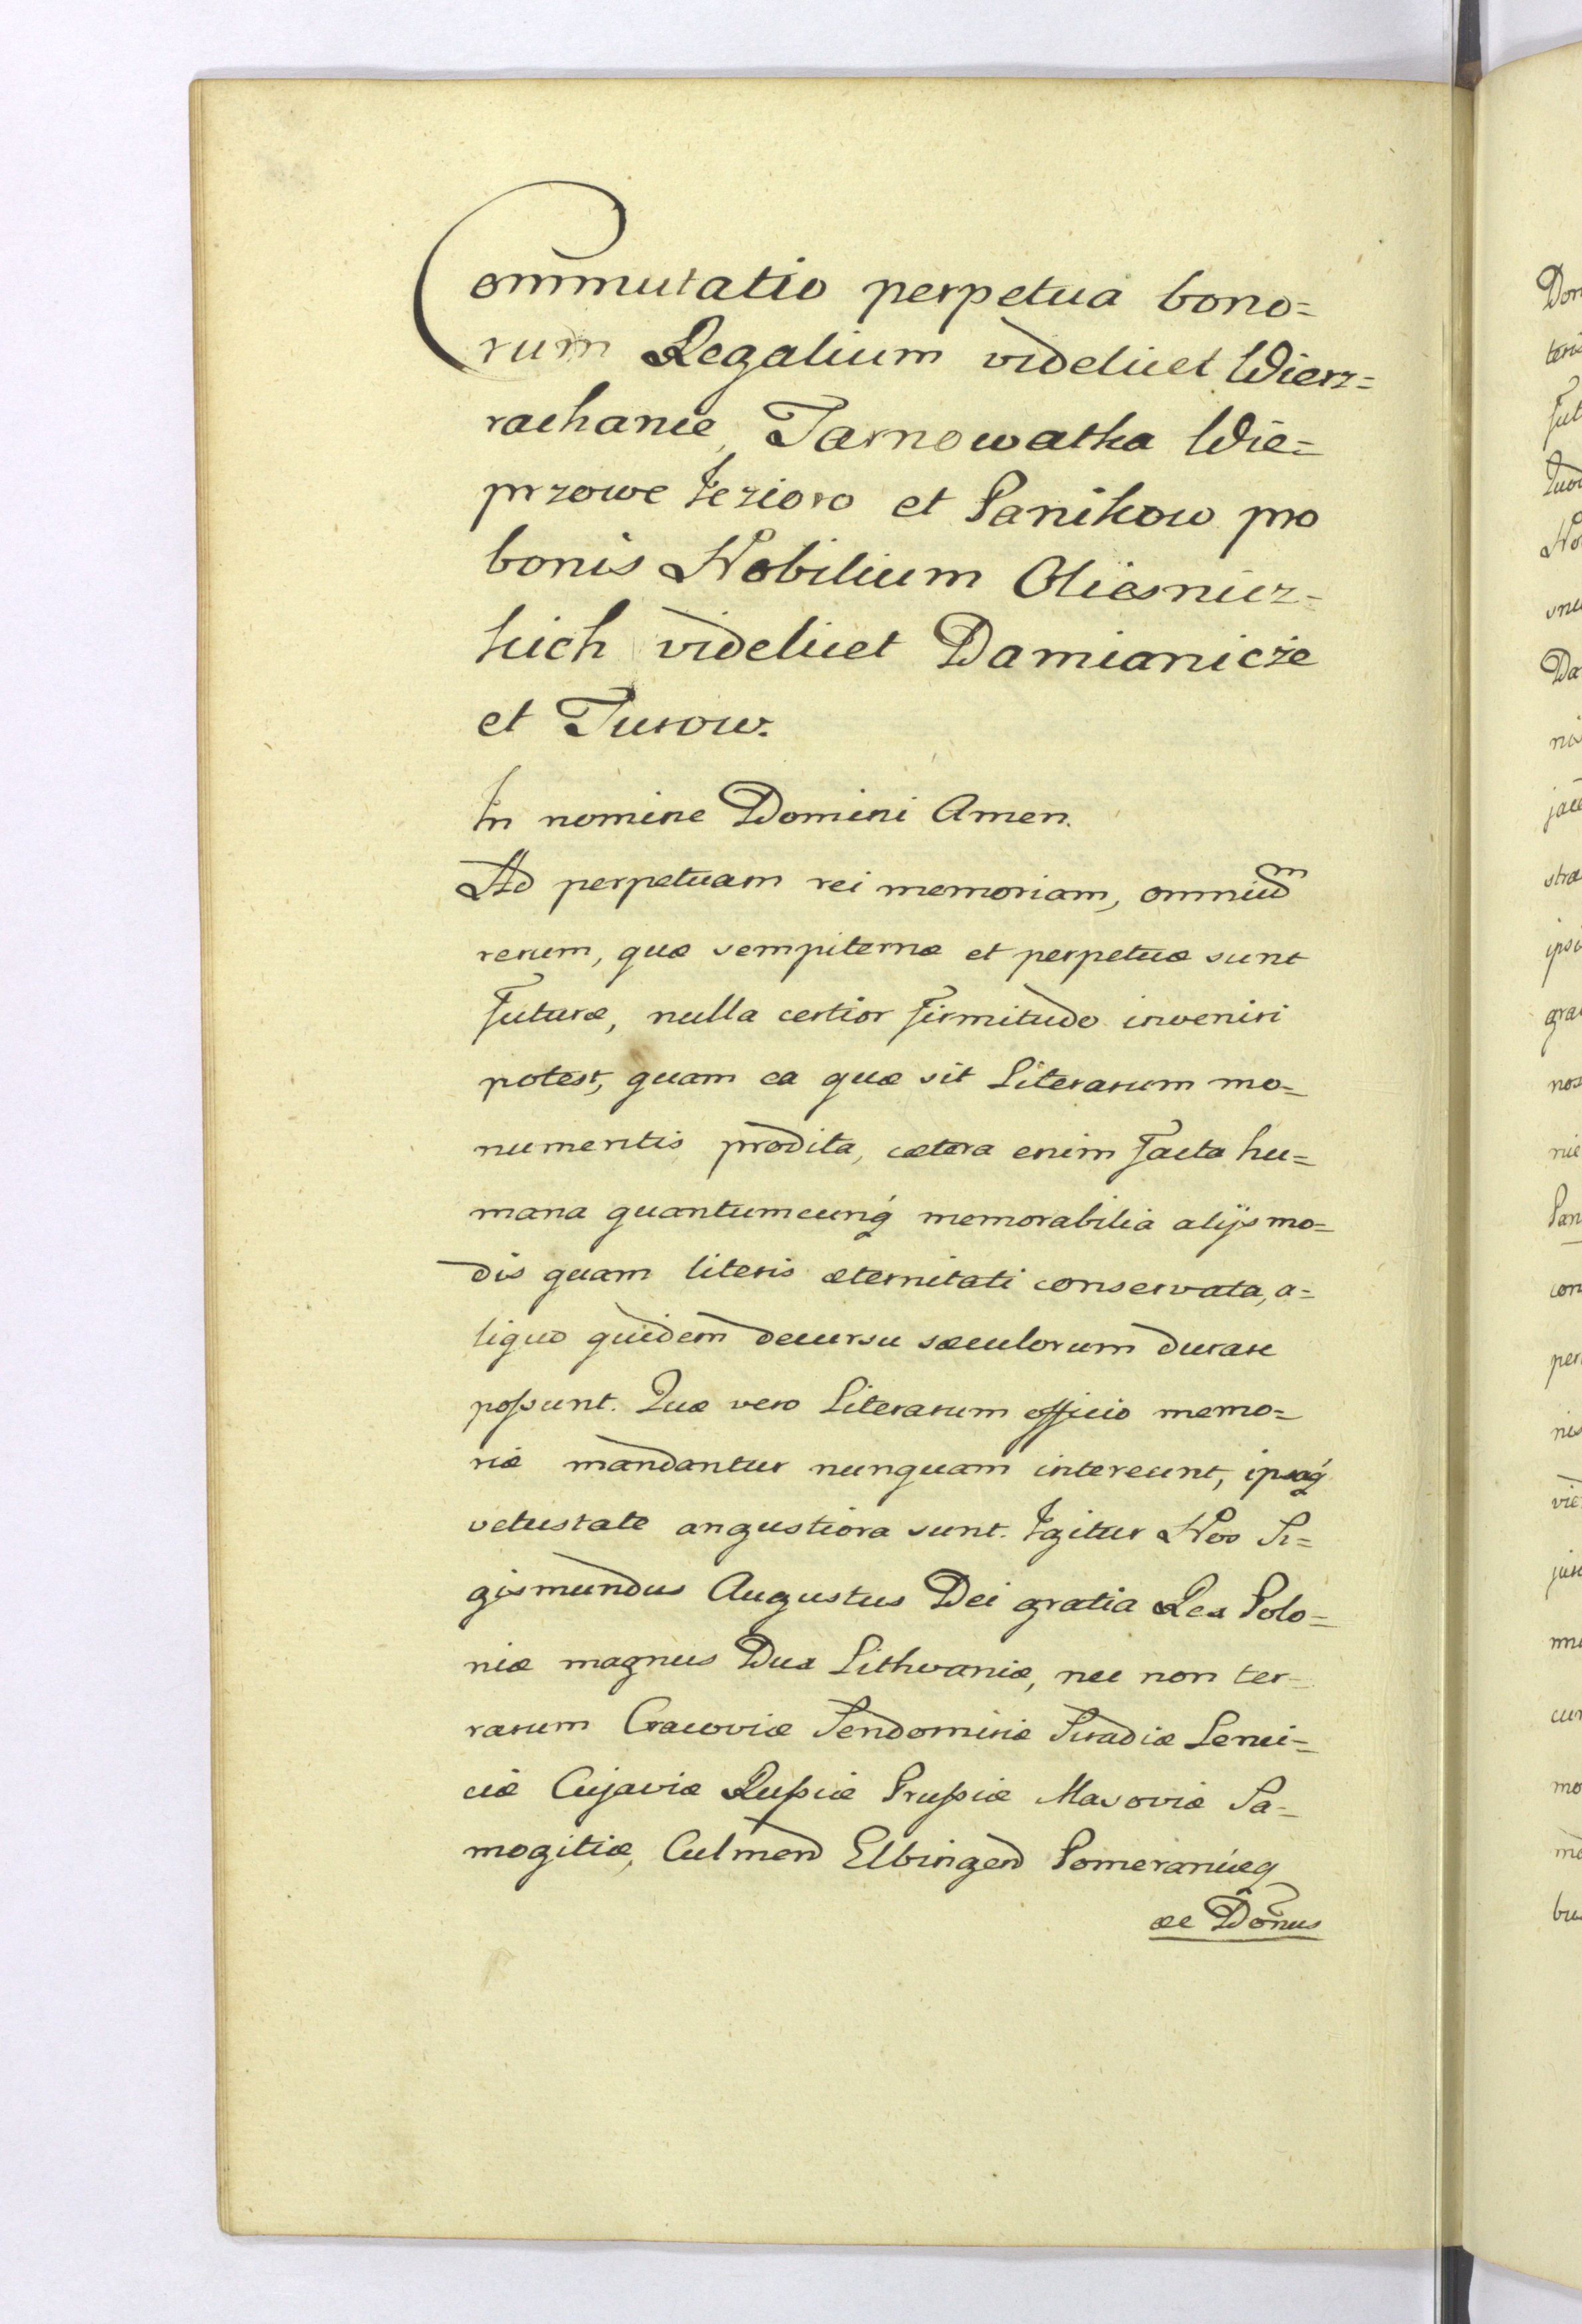 Commutatio perpetua bono=
rum Regalium videlicet Wierz=
rachanie, Tarnowatka Wie=
przowe Jezioro et Panikow pro
bonis Nobilium Oliesnicz=
kich videlicet Damianicże
et Turow.
In nomine Domini Amen.
Ad perpetuam rei memoriam, omniũm
rerum, quæ sempiternæ et perpetuæ sunt
futuræ, nulla certior firmitudo inveniri
potest, quam ea quæ sit Literarum mo=
numentis prodita, cætera enim facta hu=
mana quantumcunq́ memorabilia alijs mo=
dis quam literis æternitati conservata, a=
liquo quidem decursu sæculorum durare
poſsunt. Quæ vero Literarum officio memo=
riæ mandantur nunquam intereunt, ipsaq́
vetustate angustiora sunt. Igitur Nos Si=
gismundus Augustus Dei gratia Rex Polo=
niæ magnus Dux Lithvaniæ, nec non ter=
rarum Cracoviæ Sendomiriæ Siradiæ Lenci=
ciæ Cujaviæ Ruſsiæ Pruſsiæ Masoviæ Sa=
mogitiæ, Culmen̄ Elbingen̄ Pomeraniæq
æc Dom̃nus